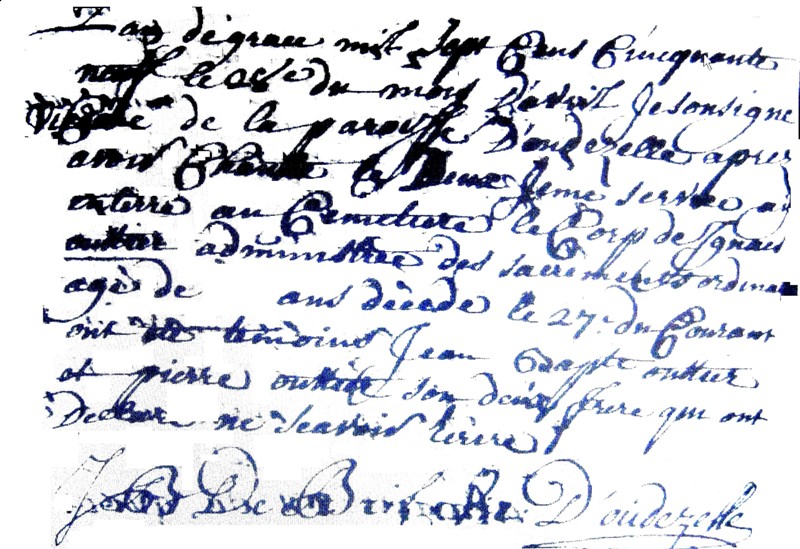 L'an de grace mil sept Cens Cincquante
neuf le 28e du mois d'avril Je sousigne
Vicaire de la paroisse d'oudezelle apres
avoir Chanté le Deuxieme service ai
enterre au Cemetiere le Corp de Ignace
outtier administree des sacrements ordinai
agé de ans décedé le 27e du Courant
ont temoins Jean Bapte outtier
et pierre outtier son deux frere qui ont
Declare ne scavoir ecrire
De Vicaire D'oudezelle